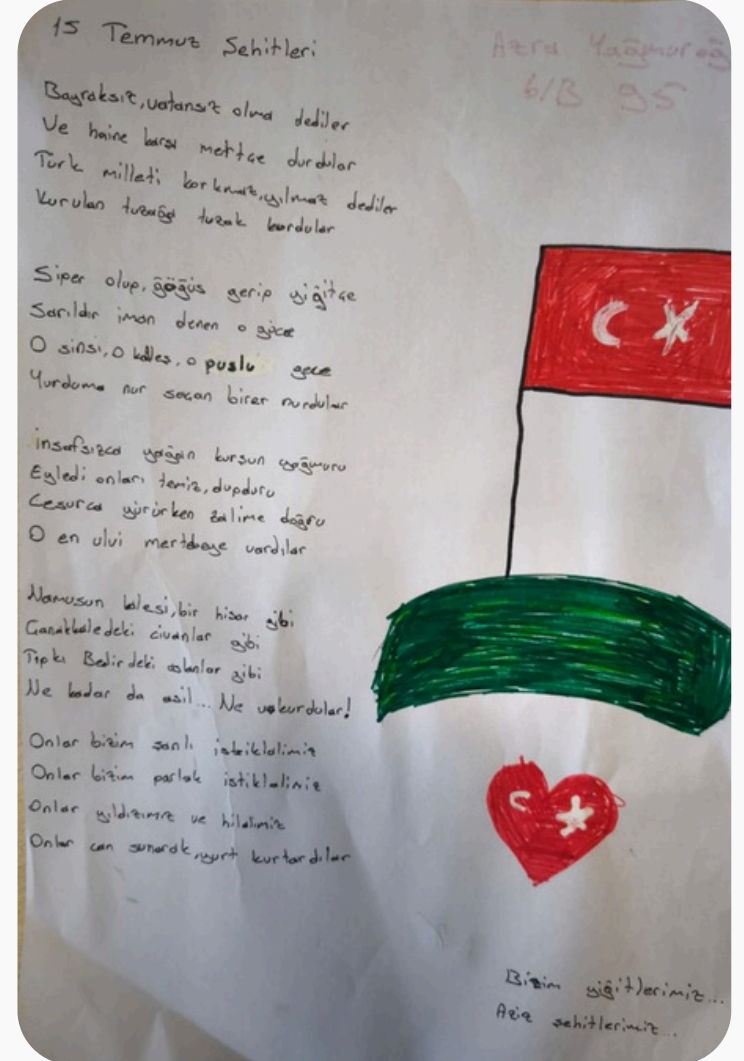 15 Temmuz Şehitleri
Azra Yağmuroğ
6/B 95
Bayraksız, vatansız olma dediler
Ve haine karşı mertçe durdular
Türk milleti korkmaz, yılmaz dediler
Kurulan tuzağa tuzak kurdular
Siper olup, göğüs gerip yiğitçe
Sarıldır iman denen o güce
O sinsi, O kalleş, o puslu gece
Yurduma nur saçan birer nurdular
İnsafsızca yağan kurşun yağmuru
Eyledi onları temiz, dupduru
Cesurca yürürken zalime doğru
O en ulvi mertebeye vardılar
Namusun kalesi, bir hisar gibi
Çanakkaledeki civanlar gibi
Tıpkı Bedirdeki aslanlar gibi
Ne kadar da asil... Ne vakurdular!
Onlar bizim şanlı istiklalimiz
Onlar bizim parlak istiklalimiz
Onlar yıldızımız ve hilalimiz
Onlar can sunarak, yurt kurtardılar
Bizim yiğitlerimiz...
Aziz şehitlerimiz...